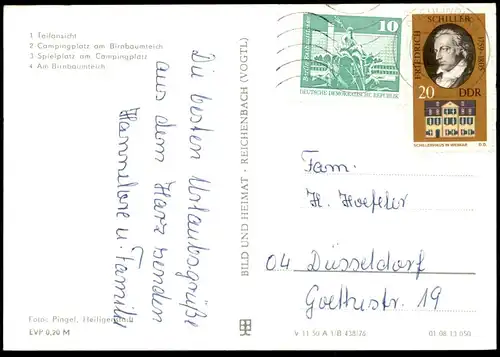 1 Teilansicht
2 Campingplatz am Birnbaumteich
3 Spielplatz am Campingplatz
4 Am Birnbaumteich
Die besten Urlaubsgrüße
aus dem Harz senden
Hannelore u. Familie
Foto: Pingel, Heiligenstadt
EVP 0,20 M
BILD UND HEIMAT · REICHENBACH (VOGTL)
10
DEUTSCHE DEMOKRATISCHE REPUBLIK
FRIEDRICH SCHILLER
1759-1805
20 DDR
SCHILLERHAUS IN WEIMAR
Fam.
H. Hoefeler
04 Düsseldorf
Goethestr. 19
V 11 50 A 1/B 438/76
01 08 13 050